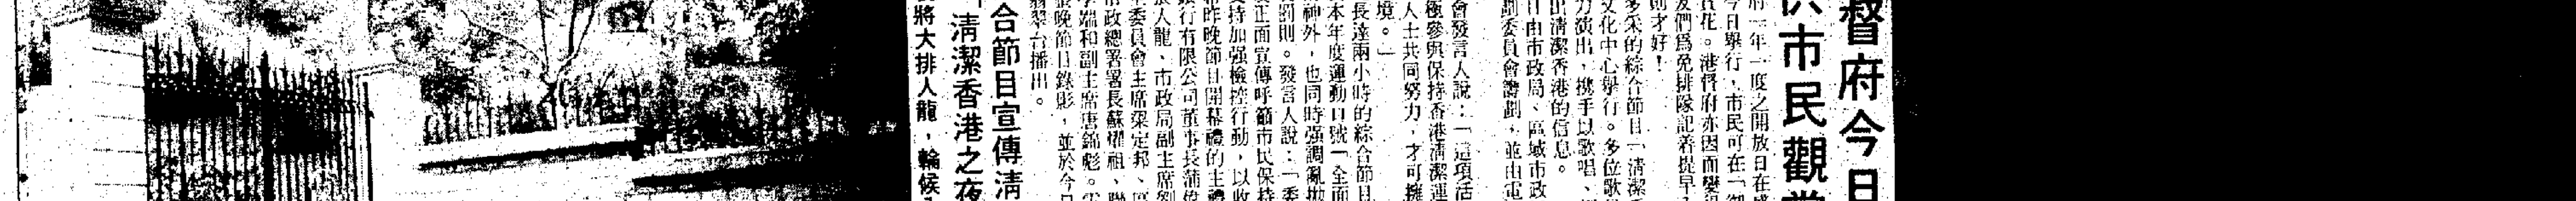 督府今日
供市民觀賞
府一年一度之開放日在盛
今日舉行，市民可在「御
賞花。港督府亦因而變
友們爲免排隊記着提早
則才好！
多采的綜合節目「清潔
文化中心舉行。多位歌
力演出，携手以歌唱、
出清潔香港的信息。
目由市政局、區域市政
劃委員會籌劃，並由電
會發言人說：「這項活
極參與保持香港清潔運
人士共同努力，才可擁
境。」
長達兩小時的綜合節目
本年度運動口號「全面
神外，也同時强調亂拋
罰則。發言人說：「委
正面宣傳呼籲市民保持
支持加强檢控行動，以收
昨晚節目開幕禮的主禮
銀行有限公司董事長蒲偉
張人龍、市政局副主席
委員會主席梁定邦、區
市政總署署長蘇燿祖、聯
端和副主席唐錦彪。
晚節目錄影，並於今日
翡翠台播出。
合節目宣傳清
清潔香港之夜
將大排人龍，輪候